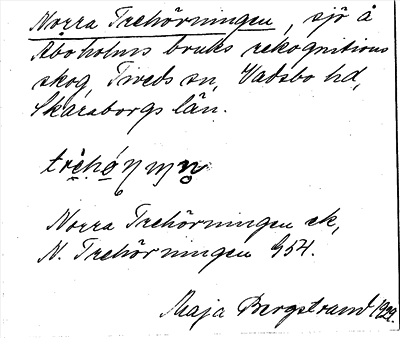 Norra Trehörningen, sjö å
Åboholms bruks rekognitions
skog, Tiveds sn, Vadsbo hd,
Skaraborgs län.
Norra Trehörningen ek,
N. Trehörningen G 54.
Maja Bergstrand 1929.